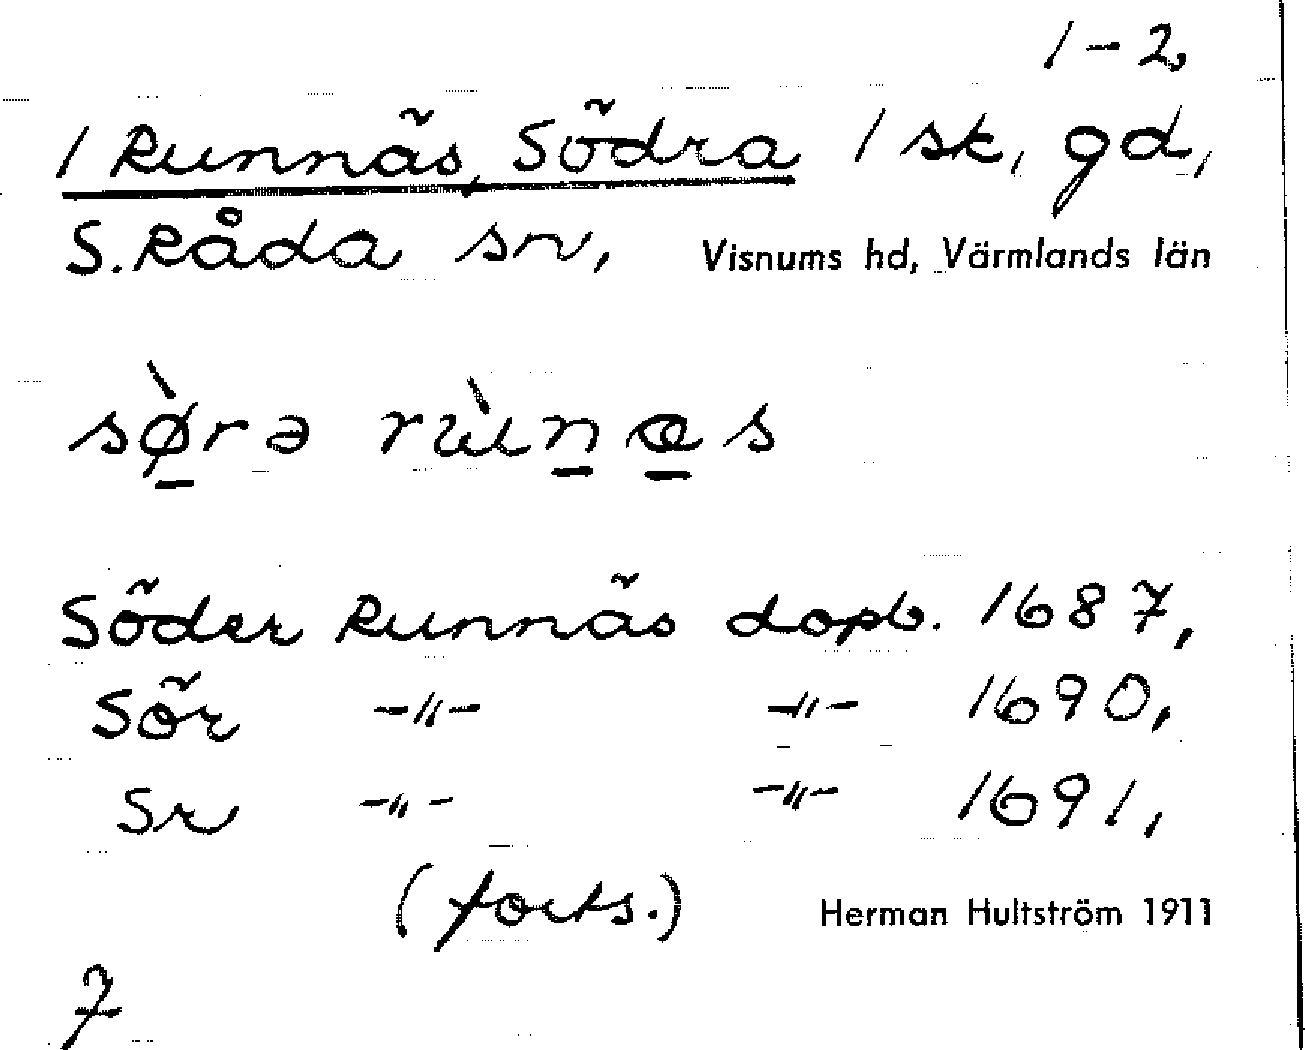 1-2
1 Runnäs, Södra 1 sk, gd,
S. Råda sn, Visnums hd, Värmlands län
sø̀rə rùnæs
Söder Runnäs dopb. 1687,
Sör -"- -"- 1690,
Sr -"- -"- 1691,
(forts.) Herman Hultström 1911
7